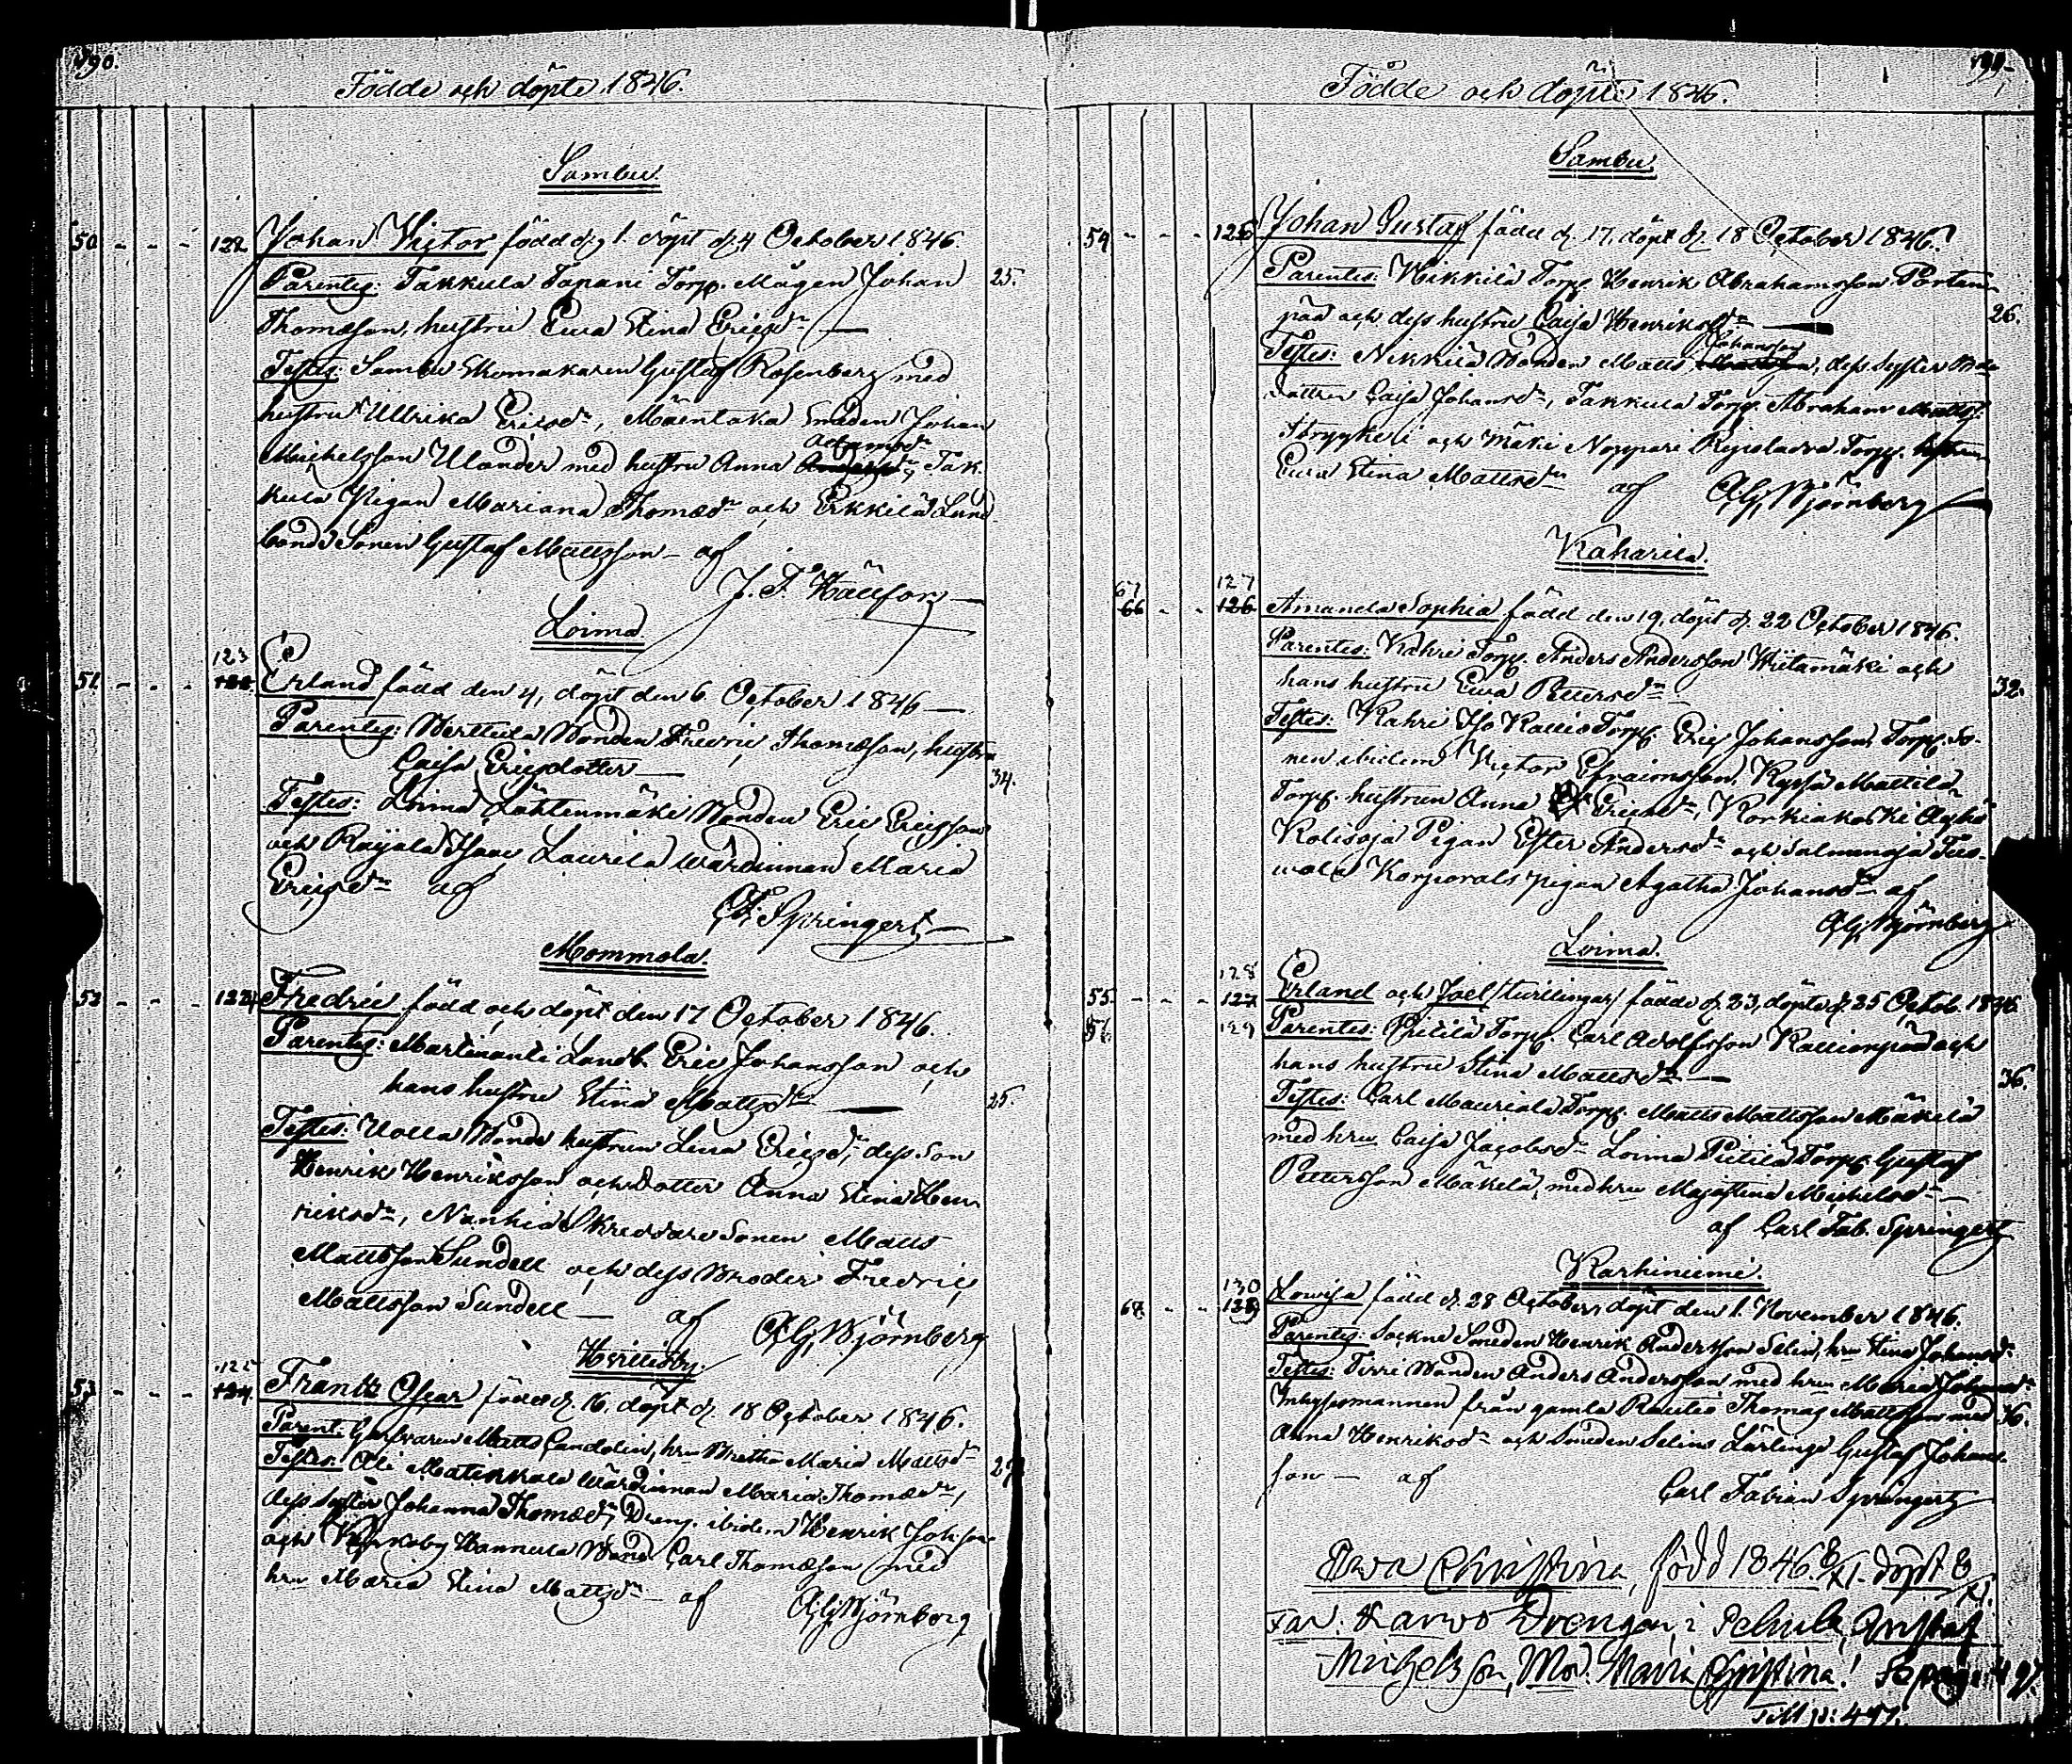 490.
Födde och döpte 1846.
Sambu.
50 - - - 122 Johan Victor född d. 1. döpt d. 4 October 1846.
Parentes: Takkula Tapani Torp. Mågen Johan 25.
Thomasson, hustru Ewa Stina Ericsdr —
Testes: Sambu Skomakaren Gustaf Rosenberg med
hustru Ullrika Ericsdr, Mäentaka Smeden Johan
Adamsdr
Michelsson Ulander med hustru Anna Tak-
kula Pigan Mariana Thomasdr och Erkkilä Land
bonde Sonen Gustaf Mattsson — af
J. F. Hällfors
Loima.
123
51 - - - Erland född den 4, döpt den 6 October 1846 —
Parentes: Merttula Bonden Fredric Thomasson, hustru
Caisa Ericsdotter — 34.
Testes: Loima Lähtenmäki Bonden Eric Ericsson
och Raijala Isac Laurila wärdinnan Maria
Ericsdr af
C.F. Springert
Mommola.
52 - - - 124 Fredric född och döpt den 17 October 1846.
Parentes: Martinanti Landb. Eric Johansson och
hans hustru Stina Mattsdr — 25.
Testes: Uolla Bonde hustrun Lena Ericsdr, dess Son
Henrik Henriksson och dotter Anna Stina Hen
riksdr, Nanhia Skreddare Sonen Matts
Mattsson Sundell och dess Broder Fredric
Mattsson Sundell — af C.G. Björnberg
125
53 - - - 124 Frantz Oscar född d. 16. döpt d. 18 October 1846.
Parent. Garfvaren Matts Candelin, hru Britha Maria Mattsdr
Testes: Matikkala wärdinnan Maria Thomasdr, 27
dess syster Johanna Thomasdr, Dreng. ibidem Henrik Johsson
och Hannula Bond. Carl Thomasson med
hru Maria Stina Mattsdr — af C.G. Björnberg
491
Födde och döpte 1846.
Sambu.
54 - - - 126 Johan Gustaf född d. 17, döpt d. 18 October 1846.
Parentes: Heikkilä Torp. Henrik Abrahamsson Portan-
pää och dess hustru Caisa Henriksdr — 26.
Johansson
Testes: Nikkilä Bonden Matts dess syster
dotter Caisa Johansdr, Takkula Torp. Abraham Mattss.
och Mäki Noppari Torp. hustrun
Ewa Stina Mattsdr af C.G. Björnberg
Kaharila.
67 127
66 - - 126 Amanda Sophia född den 19, döpt d. 22 October 1846.
Parentes: Kahri Torp. Anders Andersson Wiitamäki och
hans hustru Ewa Pettersdr — 32.
Testes: Kahri Iso Kallio Torp. Eric Johansson, Torp. So-
nen ibidem Victor Efraimsson, Mattila
Torp. hustrun Anna Ericsdr, Korkiakoski
Kolisoja Pigan Ester Andersdr och
Korporals pigan Agatha Johansdr af
C.G. Björnberg
Loima.
128
55 - - - 127 Erland och Joel /twillingar/ födde d. 23, döpte d. 25 Octob. 1846
56 129 Parentes: Piitilä Torp. Carl Adolfsson Kallionpää och
hans hustru Stina Mattsdr — 36.
Testes: Carl Mauriala Torp. Matts Mattsson Mäkilä
med hru Caisa Jacobsdr Loima Piitilä Torp. Gustaf
Pettersson Mäkelä, med hru Maja Stina Michelsdr —
af Carl Fab. Springert
Karhiniemi.
130
68 - - Lowisa född d. 28 October, döpt den 1. November 1846.
Parentes: Sockne Smeden Henrik Andersson Selin, hru Stina Johansdr
Testes: Bonden Anders Andersson med hru Maria Johansdr
Inhysesmannen från gamla Rautio Thomas Mattsson med 36.
Anna Henriksdr och Smeden Selins Lärlinge Gustaf Johans-
son — af
Carl Fabian Springert
Ewa Christina, född 1846 8/XI. döpt 8/XI.
Far: Karwo Drengen i Gustaf
Michelsson, Mod. Maria Christina! Se pag. 497.
Till p: 497.